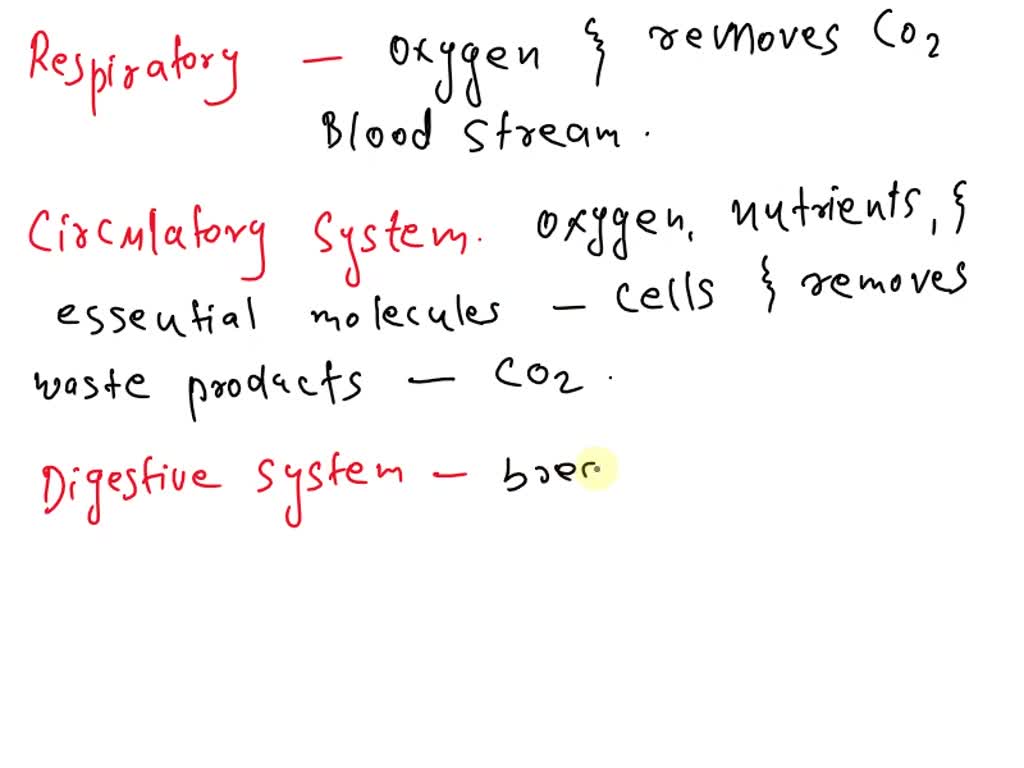 Respiratory – oxygen & removes CO2
Blood stream.
Circulatory System. oxygen, nutrients, &
essential molecules – cells & removes
waste products – CO2.
Digestive system –